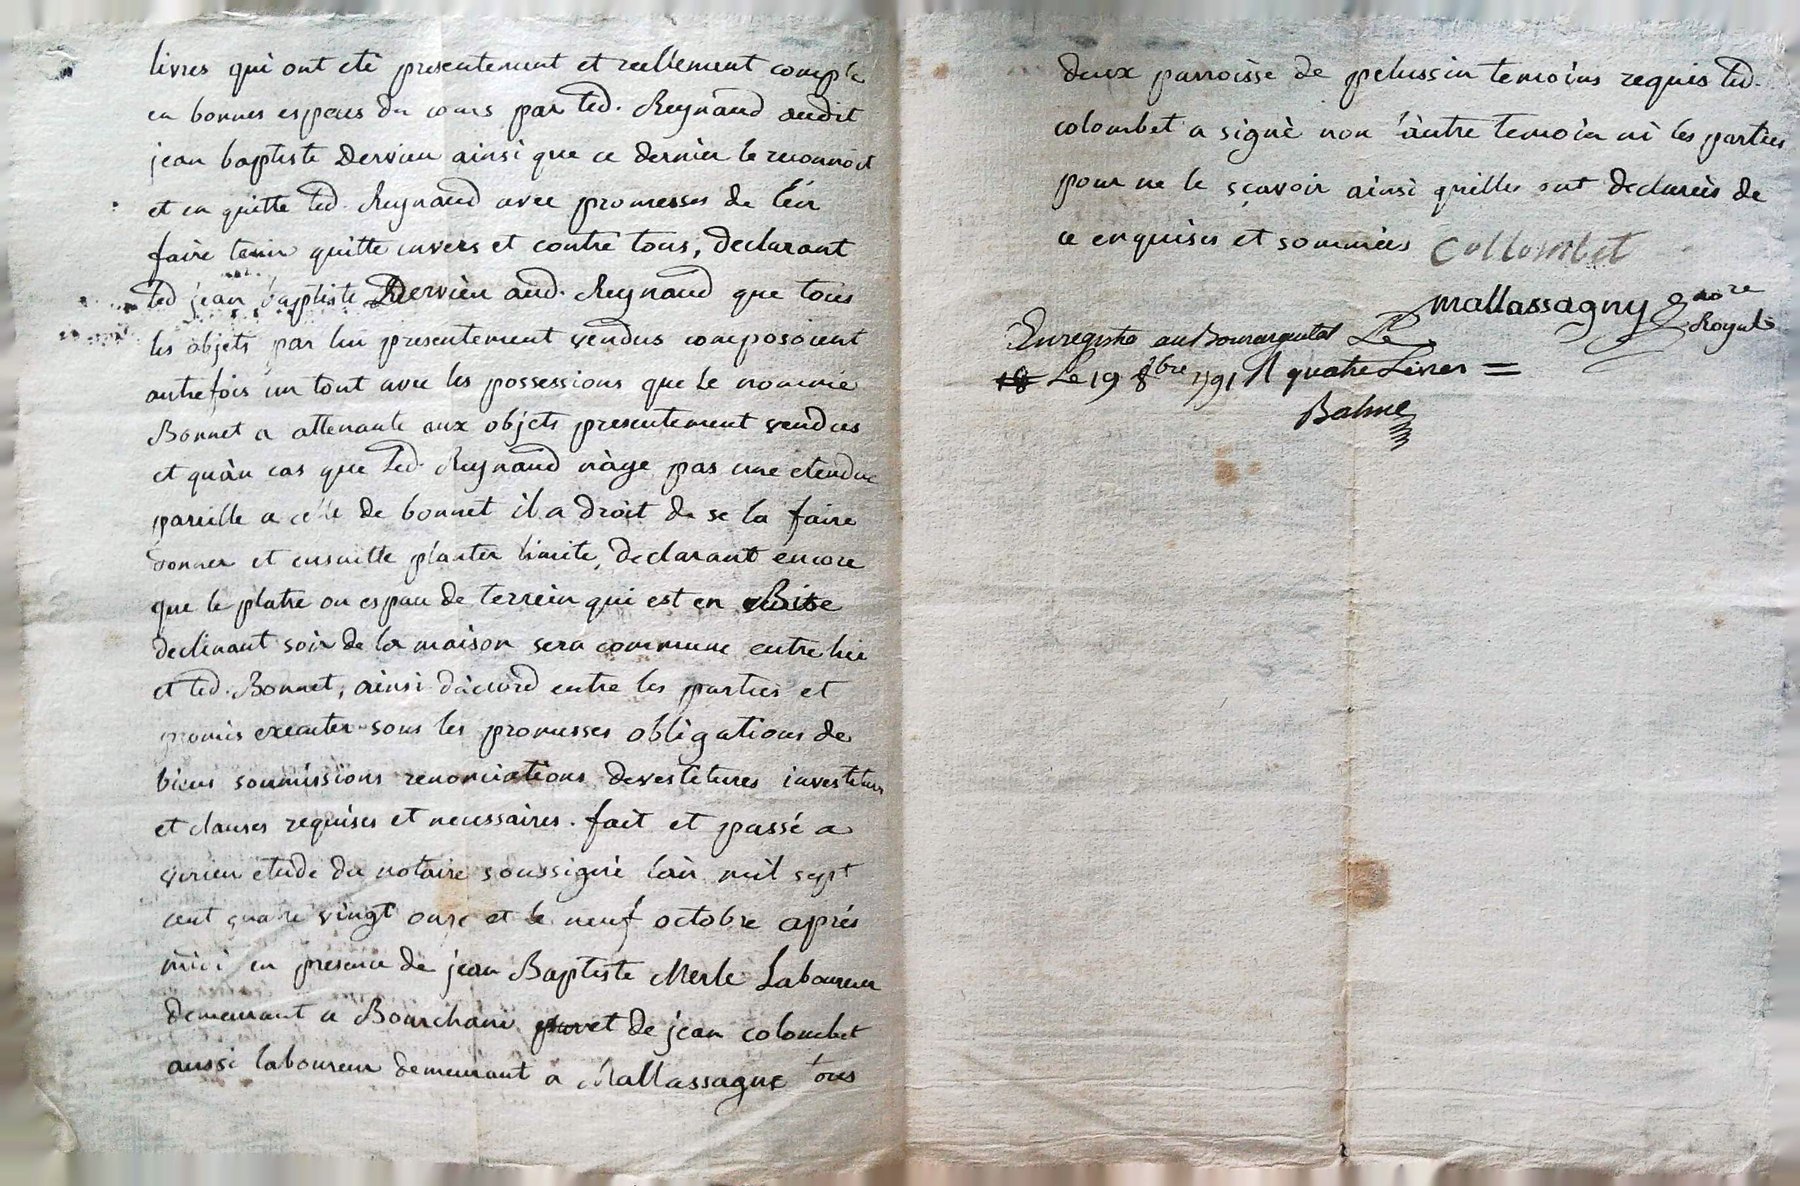 livres qui ont eté presentement et reellement compté
en bonnes especes du cours par led. Reynaud audit
jean baptiste Dervieu ainsi que ce dernier le reconnoit
et en quitte led. Reynaud avec promesses de l'en
faire tenir quitte envers et contre tous, declarant
led jean baptiste Dervieu aud. Reynaud que tous
les objets par lui presentement vendus composoient
autrefois un tout avec les possessions que le nommé
Bonnet a attenante aux objets presentement vendus
et qu'au cas que led. Reynaud n'aye pas une etendue
pareille a celle de bonnet il a droit de se la faire
donner et ensuitte planter limite, declarant encore
que le platre ou espau de terrein qui est en Bise
declinant soir de la maison sera commune entre lui
et led. Bonnet, ainsi d'accord entre les parties et
promis executer sous les promesses obligations de
biens soumissions renonciations devestitures investitures
et clauses requises et necessaires. fait et passé a
virieu etude du notaire soussigné l'an mil sept
cent quatre vingt onze et le neuf octobre aprés
midi en presence de jean Baptiste Merle Laboureur
demeurant a Bourchani et de jean colombet
aussi laboureur demeurant a Mallassagne tous
deux parroisse de pelussin temoins requis led.
colombet a signé non l'autre temoin ni les parties
pour ne le sçavoir ainsi quilles ont declarées de
ce enquises et sommées Collombet
Mallassagny nore
Royal
Enregistré au Bourargental Le
18 Le 19 8bre 1791 R quatre Livres =
Balme